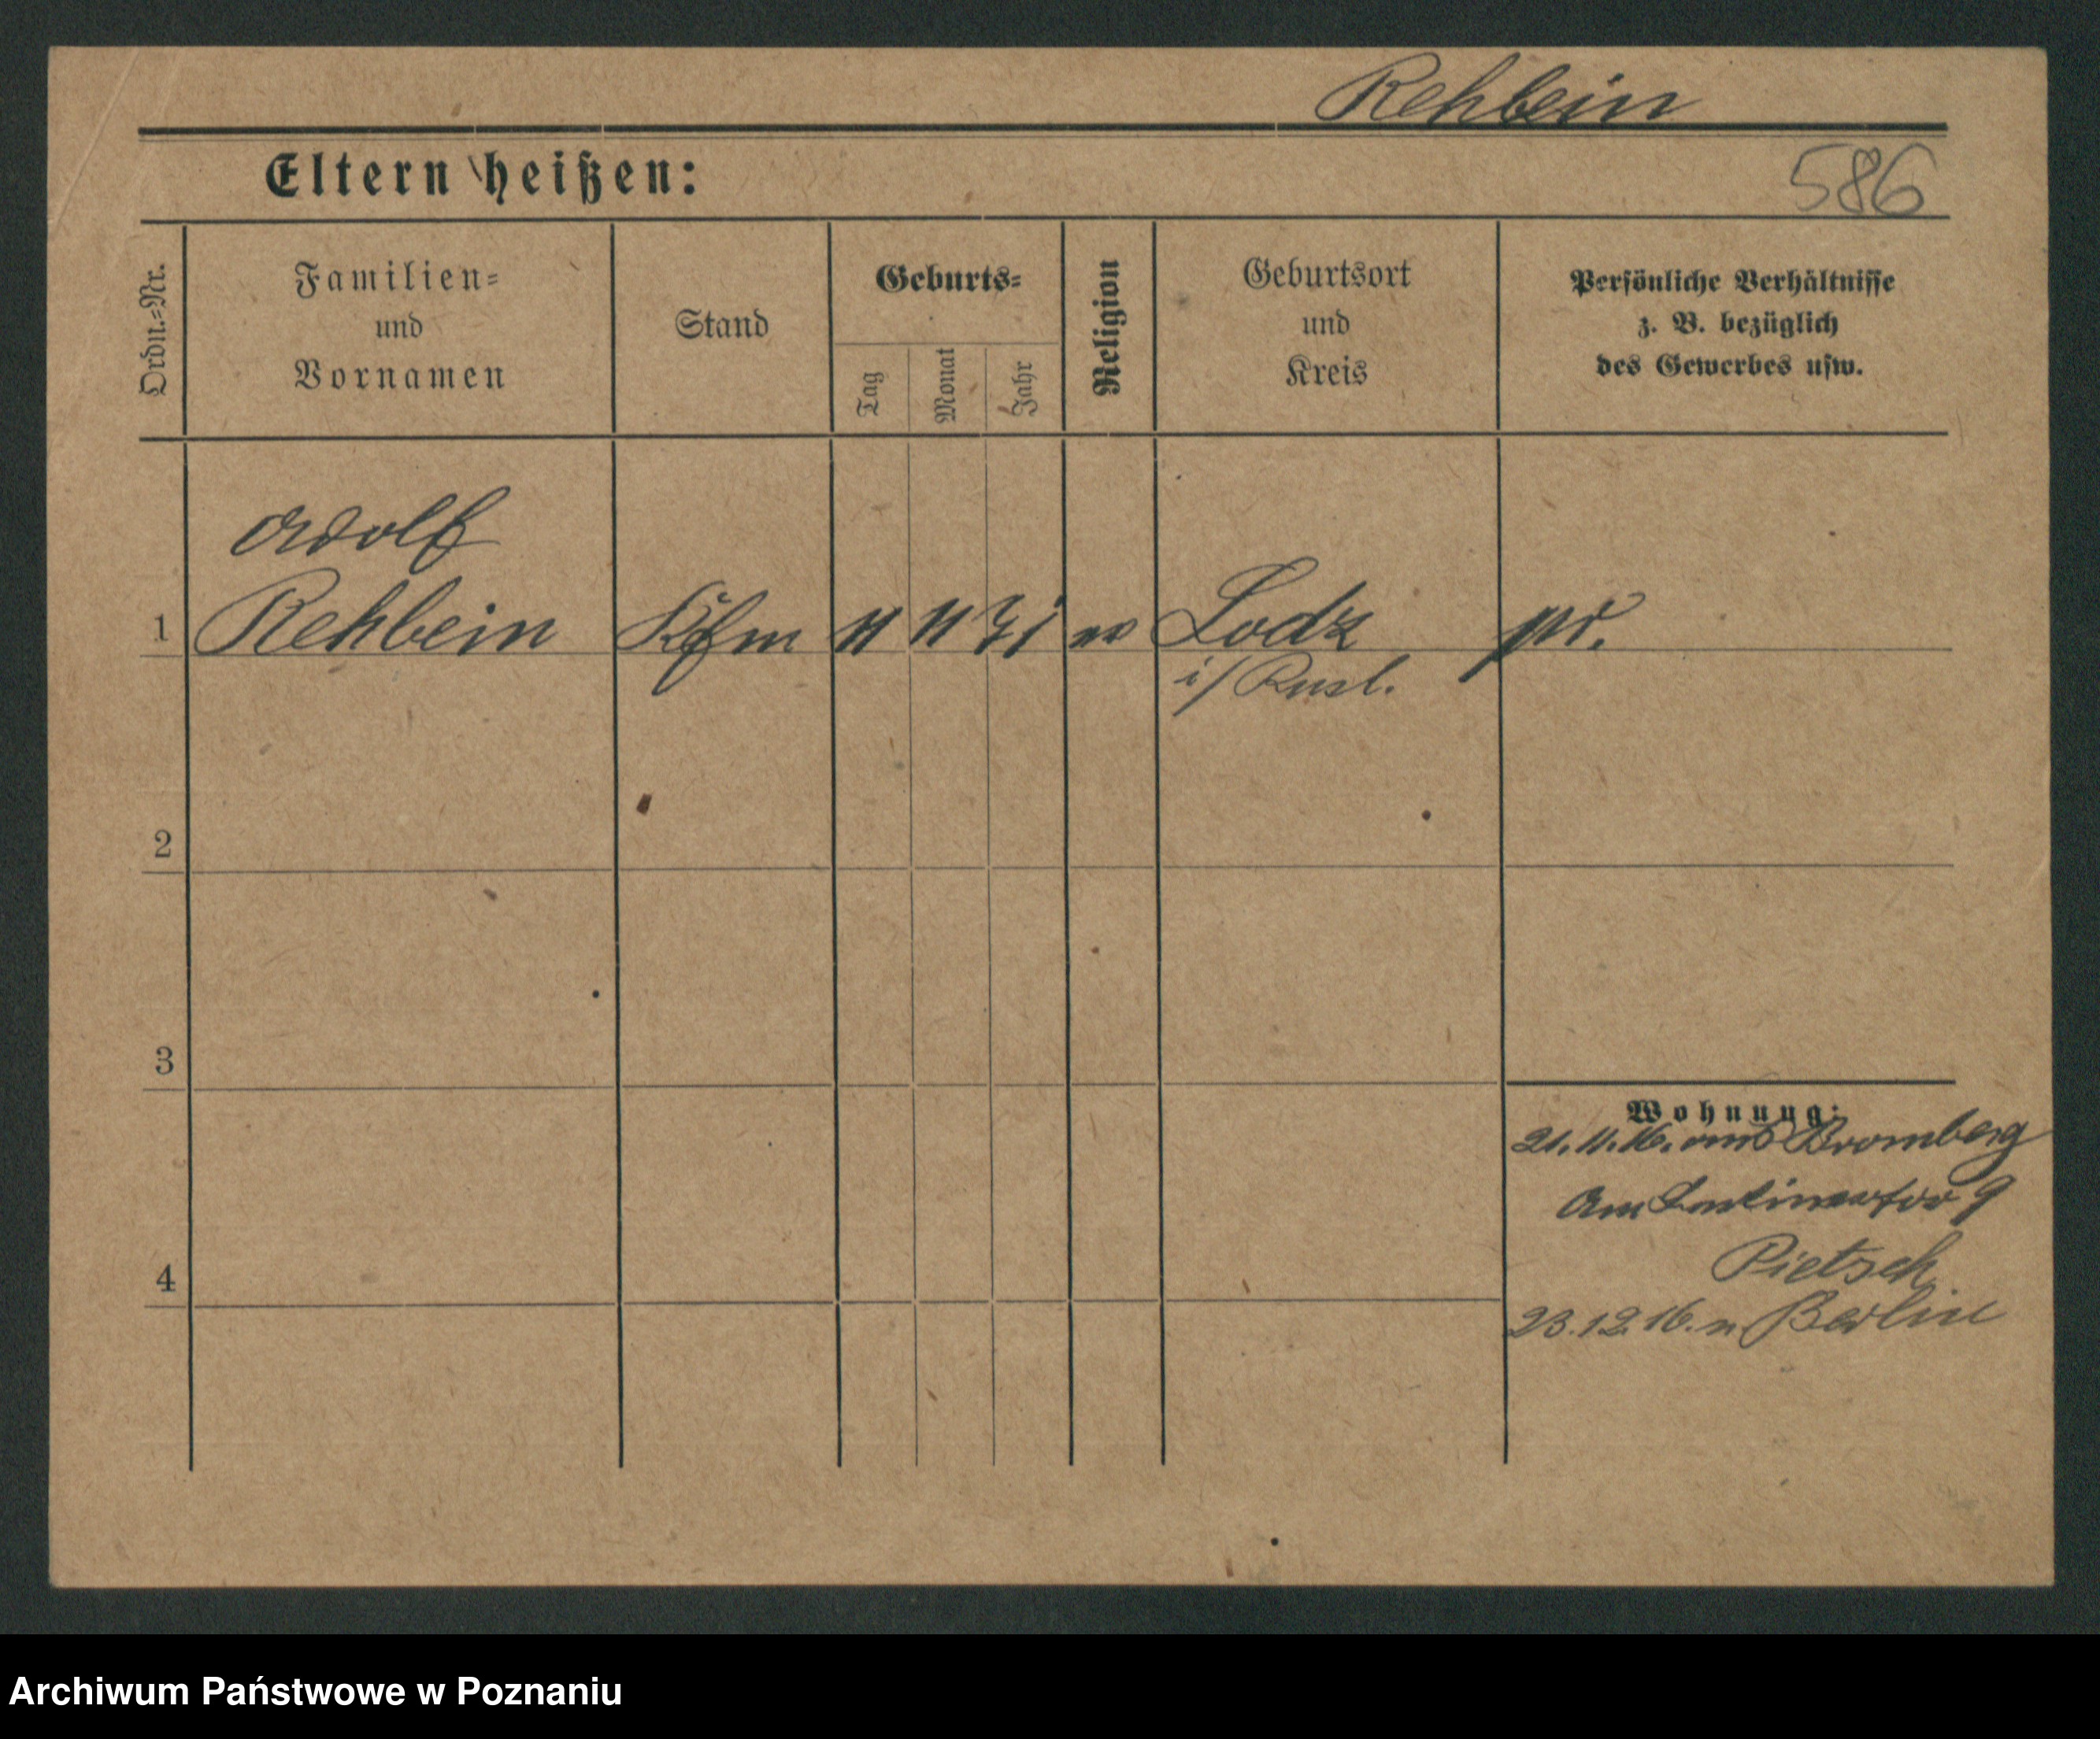 Rehbein
Eltern heißen:
586
Ordn.=Nr.
Familien=
und
Vornamen
Stand
Geburts=
Tag
Monat
Jahr
Religion
Geburtsort
und
Kreis
Persönliche Verhältnisse
z. B. bezüglich
des Gewerbes usw.
Adolf
1 Rehbein Kfm 11 11 71 Lodz pr.
i/ Rusl.
2
3
Wohnung:
21.11.16. aus Bromberg
Am 9
Pietsch
4
23.12.16. n Berlin
Archiwum Państwowe w Poznaniu